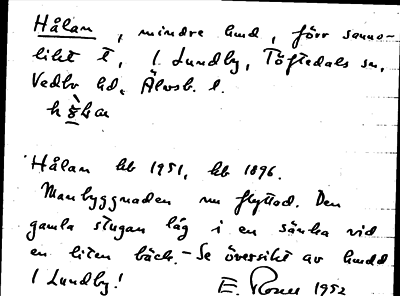 Hålan, mindre hmd, förr sanno-
likt t, 1 Lundby, Töftedals sn,
Vedbo hd, Älvsb. l.
Hålan kb 1951, kb 1896.
Manbyggnaden nu flyttad. Den
gamla stugan låg i en sänka vid
en liten bäck. - Se översikt av hmdd
1 Lundby! E. 1952